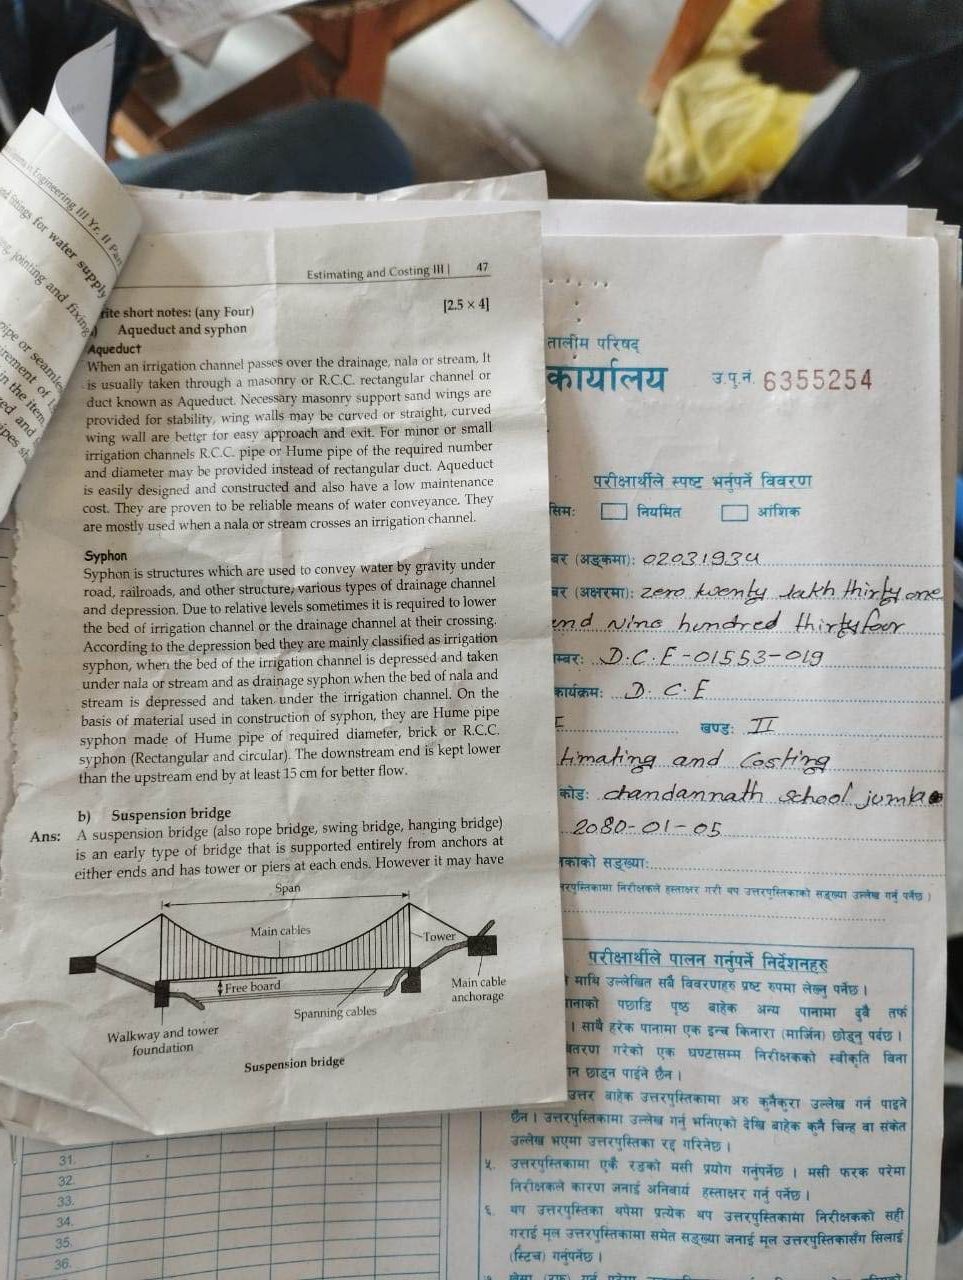 Engineering III Yr. II Par
fittings for water supply
jointing and fixing
pipe or seamle
irement of
in the item
ipes sh
Estimating and Costing III | 47
ite short notes: (any Four) [2.5 × 4]
Aqueduct and syphon
Aqueduct
When an irrigation channel passes over the drainage, nala or stream, It
is usually taken through a masonry or R.C.C. rectangular channel or
duct known as Aqueduct. Necessary masonry support sand wings are
provided for stability, wing walls may be curved or straight, curved
wing wall are better for easy approach and exit. For minor or small
irrigation channels R.C.C. pipe or Hume pipe of the required number
and diameter may be provided instead of rectangular duct. Aqueduct
is easily designed and constructed and also have a low maintenance
cost. They are proven to be reliable means of water conveyance. They
are mostly used when a nala or stream crosses an irrigation channel.
Syphon
Syphon is structures which are used to convey water by gravity under
road, railroads, and other structure, various types of drainage channel
and depression. Due to relative levels sometimes it is required to lower
the bed of irrigation channel or the drainage channel at their crossing.
According to the depression bed they are mainly classified as irrigation
syphon, when the bed of the irrigation channel is depressed and taken
under nala or stream and as drainage syphon when the bed of nala and
stream is depressed and taken under the irrigation channel. On the
basis of material used in construction of syphon, they are Hume pipe
syphon made of Hume pipe of required diameter, brick or R.C.C.
syphon (Rectangular and circular). The downstream end is kept lower
than the upstream end by at least 15 cm for better flow.
b) Suspension bridge
Ans: A suspension bridge (also rope bridge, swing bridge, hanging bridge)
is an early type of bridge that is supported entirely from anchors at
either ends and has tower or piers at each ends. However it may have
Span
Main cables
Tower
Free board
Spanning cables
Main cable
anchorage
Walkway and tower
foundation
Suspension bridge
तालीम परिषद्
कार्यालय उ.पू.नं. 6355254
परीक्षार्थीले स्पष्ट भर्नुपर्ने विवरण
नियमित आंशिक
बर (अङ्कमा): 02031934
बर (अक्षरमा): zero twenty lakh thirty one
and Nine hundred thirty four
म्बर: D.C.E-01553-019
कार्यक्रम: D. C. E
खण्ड: II
timating and Costing
कोड: chandannath school jumla
2080-01-05
काको सङ्ख्या:
रपुस्तिकामा निरीक्षकले हस्ताक्षर गरी थप उत्तरपुस्तिकाको सङ्ख्या उल्लेख गर्नु पर्नेछ।
परीक्षार्थीले पालन गर्नुपर्ने निर्देशनहरु
माथि उल्लेखित सबै विवरणहरु प्रष्ट रुपमा लेख्नु पर्नेछ।
पानाको पछाडि पृष्ठ बाहेक अन्य पानामा दुवै तर्फ
। साथै हरेक पानामा एक इन्च किनारा (मार्जिन) छोड्नु पर्दछ।
वितरण गरेको एक घण्टासम्म निरीक्षकको स्वीकृति बिना
न छाड्न पाईने छैन।
उत्तर बाहेक उत्तरपुस्तिकामा अरु कुनैकुरा उल्लेख गर्न पाइने
छैन। उत्तरपुस्तिकामा उल्लेख गर्नु भनिएको देखि बाहेक कुनै चिन्ह वा संकेत
उल्लेख भएमा उत्तरपुस्तिका रद्द गरिनेछ।
५. उत्तरपुस्तिकामा एकै रङको मसी प्रयोग गर्नुपर्नेछ । मसी फरक परेमा
निरीक्षकले कारण जनाई अनिवार्य हस्ताक्षर गर्नु पर्नेछ।
६. थप उत्तरपुस्तिका थपेमा प्रत्येक थप उत्तरपुस्तिकामा निरीक्षकको सही
गराई मूल उत्तरपुस्तिकामा समेत सङ्ख्या जनाई मूल उत्तरपुस्तिकासँग सिलाई
(स्टिच) गर्नुपर्नेछ।
31.
32.
33.
34.
35.
36.